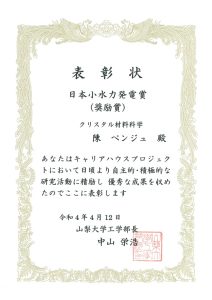 表彰状
日本小水力発電賞
(奨励賞)
クリスタル材料科学
陳 ベンジュ 殿
あなたはキャリアハウスプロジェク
トにおいて日頃より自主的・積極的な
研究活動に精励し 優秀な成果を収め
たのでここに表彰します
令和4年4月12日
山梨大学工学部長
中山 栄浩